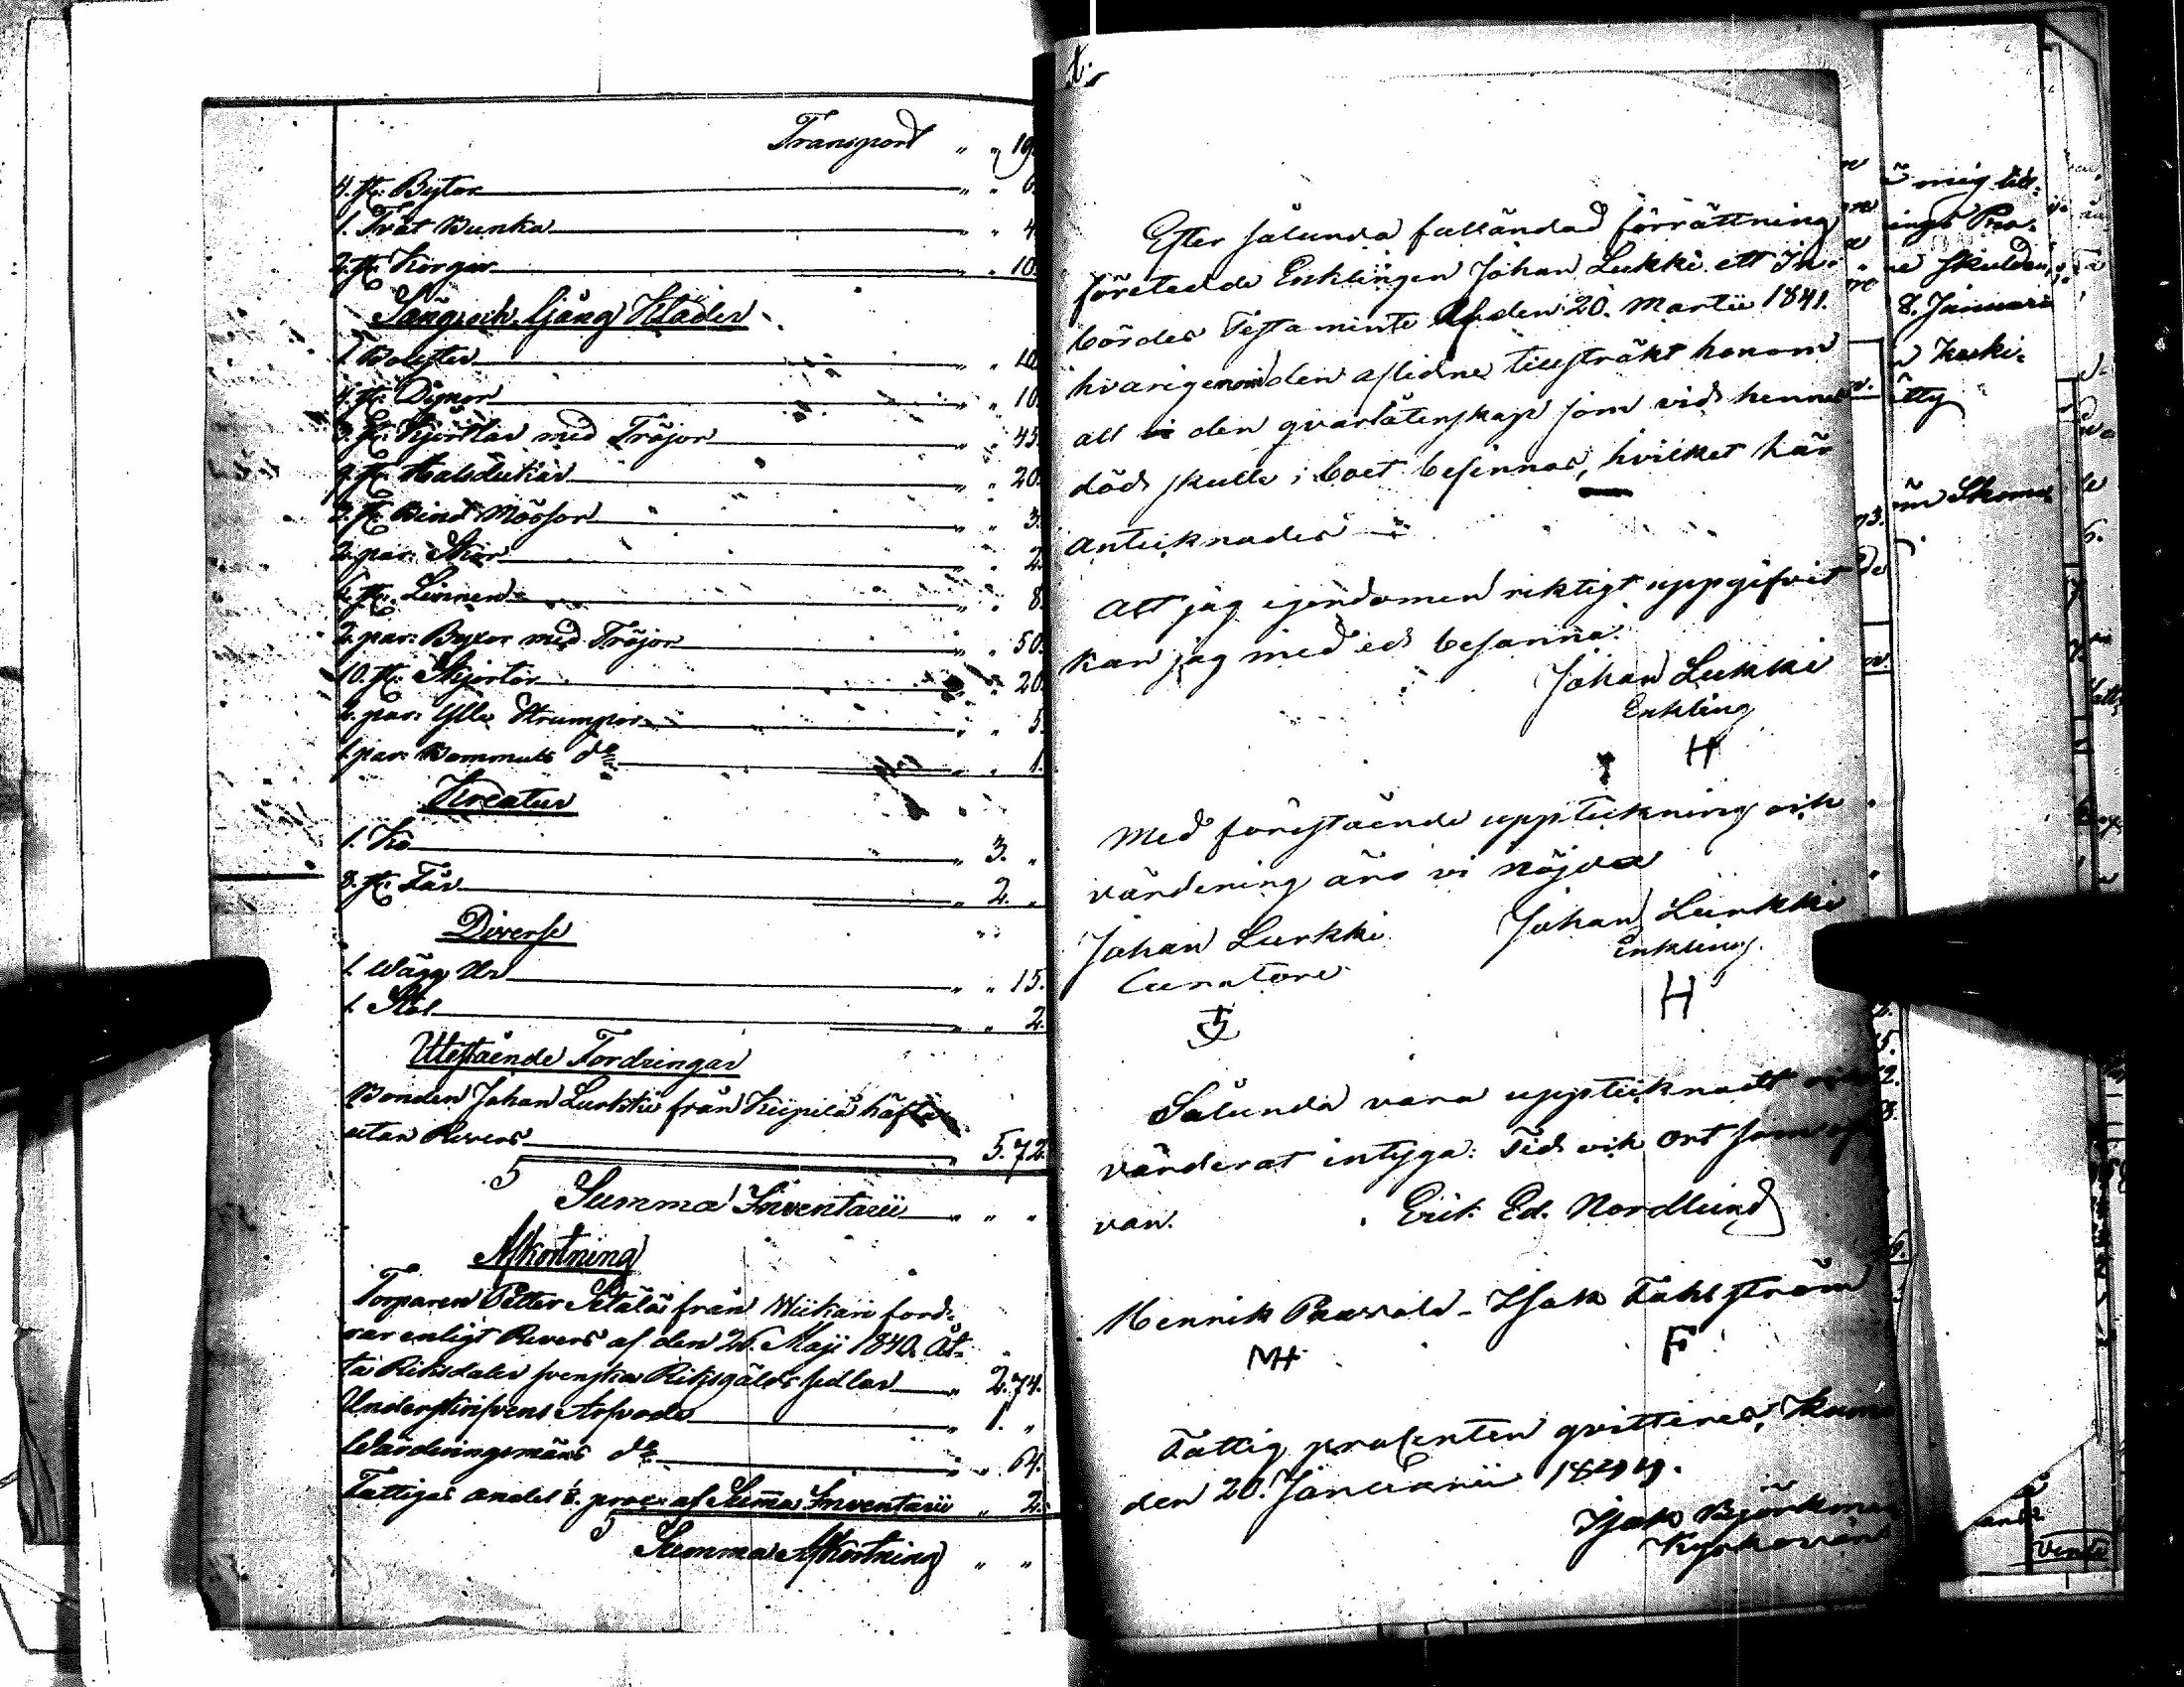 Transport " " 19.
4. st. Byttor " " 6.
1. Trät Bunka " " 4.
2. st. Korgar " " 10.
Säng och Gång Kläder
1. Bolster " " 10.
4. st. Dynor " " 10.
3. st. Kjortlar med Tröjor " " 45.
9. st. Halsdukar " " 20.
3. st. Bind Mössor " " 3.
2. par. Skor " " 2.
6. st. Linnen " " 8.
2. par. Byxor med Tröjor " " 50.
10. st. Skjortor " " 20.
2. par. Ylle Strumpor " " 5.
1. par. Bommuls do " " 1.
Kreatur
1. Ko " 3. "
8. st. Får " 2. "
Diverse
1. Wägg Ur " " 15.
1. Stol " " 2.
Utestående Fordringar
Bonden Johan Lurkki från häfte
utan Revers " 5.72.
Summa Inventarii " " "
Afkortning
Torparen Petter Setälä från Wiikari ford-
rar enligt Revers af den 26. Maji 1840. Åt-
ta Riksdaler svenska Riksgälds sedlar " 2.74.
Underskrifvens Arfvode " 1. "
Wärderingsmäns do " " 64.
Fattigas andel proc. af Summa Inventarii " 2.
Summa Afkortning " "
Efter sålunda fulländad förrättning
företedde Enklingen Johan Lukki ett In-
bördes Testamente Af den 20. Martii 1841.
hvarigenom den aflidne tillsträkt honom
all den qvarlåtenskap som vid hennes
död skulle i boet befinnas, hvilket här
anteiknades
Att jag egendomen riktigt uppgifvit
kan jag med ed besanna.
Johan Lukki
Enkling
H
Med förestående uppteikning och
värdering äro vi nöjda
Johan Lurkki Johan Lurkki
Curatore Enkling
H
Sålunda vara uppteiknadt och
värderat intyga: Tid och Ort som of-
van. Erik Ed. Nordlund
Henrik Isak Fahlström
MH F
Fattig procenten qvitteras, Kumo
den 20. Januarii
Isak Björkman
Kyrkovärd
å mig till-
skulden
8. Januarii